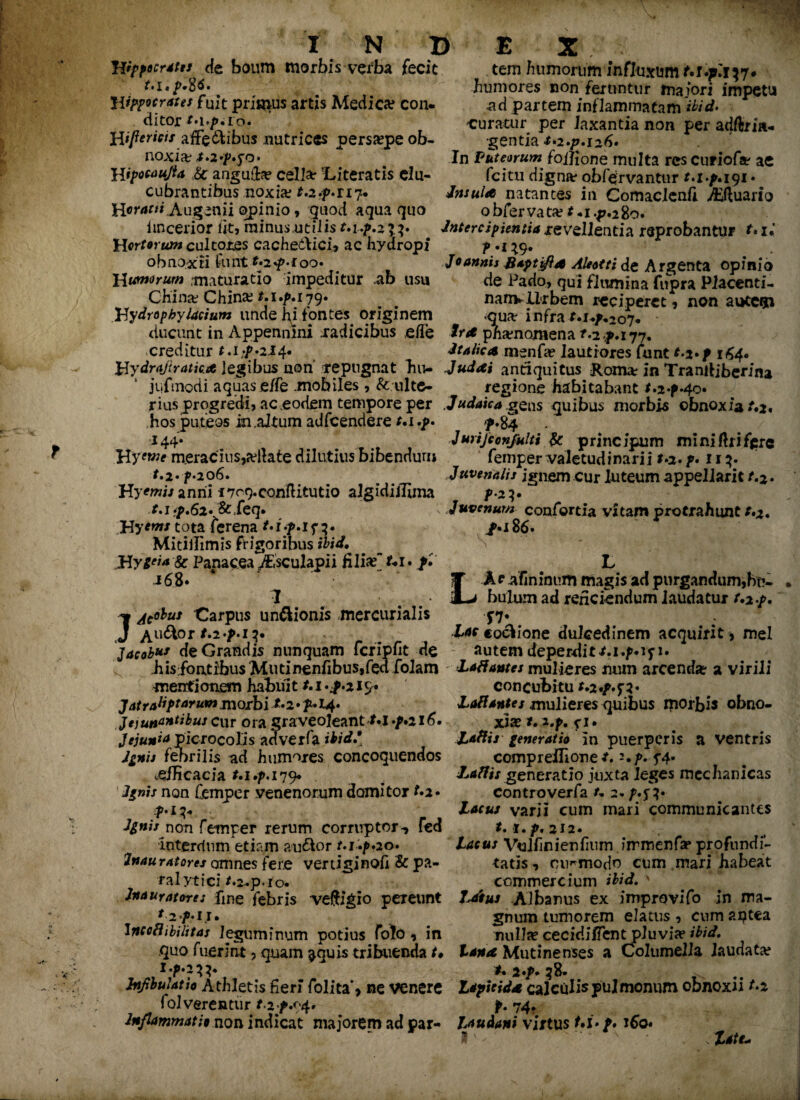 I N D E X
Hippocrates de boum morbis verba fecit
t.1.p.86.
Hippocrates fuit primus artis Medicæ con-
ditor t.1.p.10.
Histericis affectibus nutrices persæpe ob-
noxiæ t.2.p.50.
Hipocausta & angustæ cellæ Literatis elu-
cubrantibus noxiæ t.2.p.117.
Horatii Augenii opinio, quod aqua quo
sincerior sit, minus utilis t.1.p.233.
Hortorum cultores cachectici, ac hydropi
obnoxii sunt t.2.p.100.
Humorum maturatio impeditur ab usu
Chinæ Chinæ t.1.p.179.
Hydrophylacium unde hi fontes originem
ducunt in Appennini radicibus esse
creditur t.1.p.214.
Hydrastaticæ legibus non repugnat hu-
jusmodi aquas esse mobiles, & ulte-
rius progredi, ac eodem tempore per
hos puteos in altum adscendere t.1.p.
144.
Hyeme meracius, æstate dilutius bibendum
t.2.p.206.
Hyemis anni 1709. constitutio algidissima
t.1.p.62. & seq.
Hyems tota serena t.1.p.153.
Mitissimis frigoribus ibid.
Hygeia & Panacea Æsculapii filiæ t.1.p.
168.
I
Jacobus Carpus unctionis mercurialis
Auctor t.2.p.13.
Jacobus de Grandis nunquam scripsit de
his fontibus Mutinensibus, sed solam
mentionem habuit t.1.p.215.
Jatraliptarum morbi t.2.p.14.
Jejunantibus cur ora graveoleant t.1.p.216.
Jejunia picrocolis adversa ibid.
Ignis febrilis ad humores concoquendos
efficacia t.1.p.179.
Ignis non semper venenorum domitor t.2.
p.13.
Ignis non semper rerum corruptor, sed
interdum etiam auctor t.1.p.20.
Inauratores omnes fere vertiginosi & pa-
ralytici t.2.p.10.
Inauratores sine febris vestigio pereunt
t.2.p.11.
Incoctibilitas leguminum potius solo, in
quo fuerint, quam aquis tribuenda t.
1.p.233.
Infibulatio Athletis fieri solita, ne venere
solverentur t.2.p.94.
Inflammatio non indicat majorem ad par-
tem humorum influxum t.1.p.137.
humores non feruntur majori impetu
ad partem inflammatam ibid.
curatur per laxantia non per adstrin-
gentia t.2.p.126.
In Puteorum fossione multa res curiosæ ac
scitu dignæ observantur t.1.p.191.
Insulæ natantes in Comaclensi Æstuario
observatæ t.1.p.280.
Intercipientia revellentia reprobantur t.1.
p.139.
Joannis Baptistæ Aleotti de Argenta opinio
de Pado, qui flumina supra Placenti-
nam Urbem reciperet, non autem
quæ infra t.1.p.207.
Iræ phænomena t.2.p.177.
Italicæ mensæ lautiores sunt t.2.p 164.
Judæi antiquitus Romæ in Transtiberina
regione habitabant t.2.p.40.
Judaica gens quibus morbis obnoxia t.2.
p.84.
Jurisconsulti & principum ministri fere
semper valetudinarii t.2.p. 113.
Juvenalis ignem cur luteum appellarit t.2.
p.23.
Juvenum consortia vitam protrahunt t.2.
p.186.
L
Lac asininum magis ad purgandum, bu-
bulum ad reficiendum laudatur t.2.p.
57.
Lac coctione dulcedinem acquirit, mel
autem deperdit t.1.p.151.
Lactantes mulieres num arcendæ a virili
concubitu t.2.p.53.
Lactantes mulieres quibus morbis obno-
xiæ t.2.p. 51.
Lactis generatio in puerperis a ventris
compressione t.2.p. 54.
Lactis generatio juxta leges mechanicas
controversa t. 2.p.53.
Lacus varii cum mari communicantes
t.1.p.212.
Lacus Vulsiniensium immensæ profundi-
tatis, cur modo cum mari habeat
commercium ibid.
Latus Albanus ex improviso in ma-
gnum tumorem elatus, cum antea
nullæ cecidissent pluviæ ibid.
Lanæ Mutinenses a Columella laudatæ
t. 2.p. 38.
Lapicidæ calculis pulmonum obnoxii t.2
p. 74.
Laudani virtus t.1.p. 160.
Late-